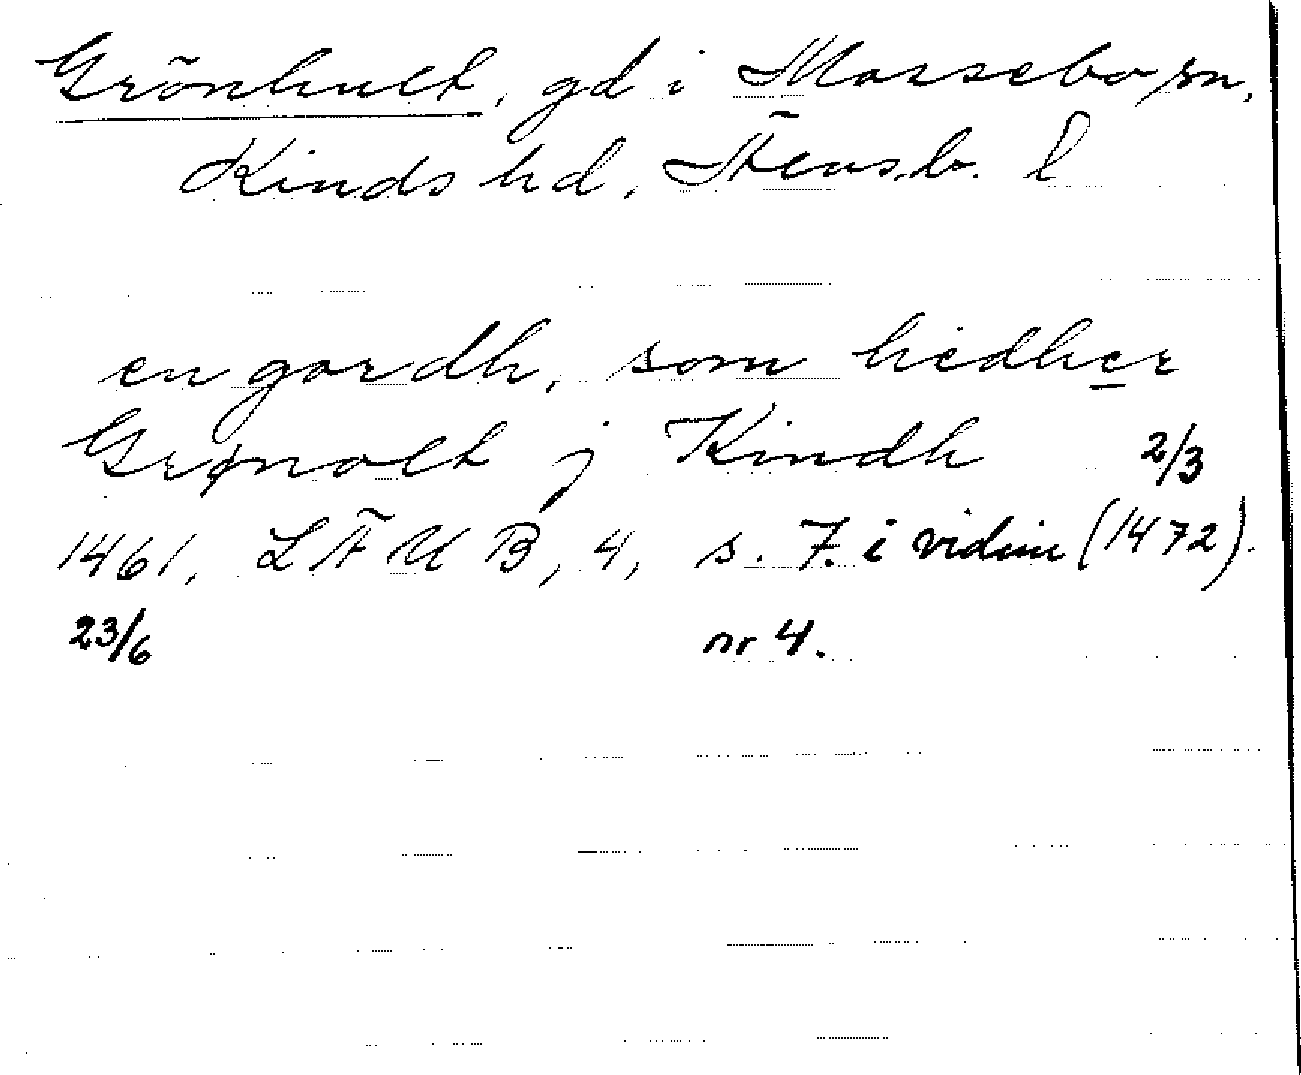 Grönhult, gd i Mossebo sn,
Kinds hd, Älvsb. l
en gardh, som hedher
Grønolt j Kindh 2/3
1461, LÄUB, 4, s. 7. i vidim (1472).
23/6 nr 4.